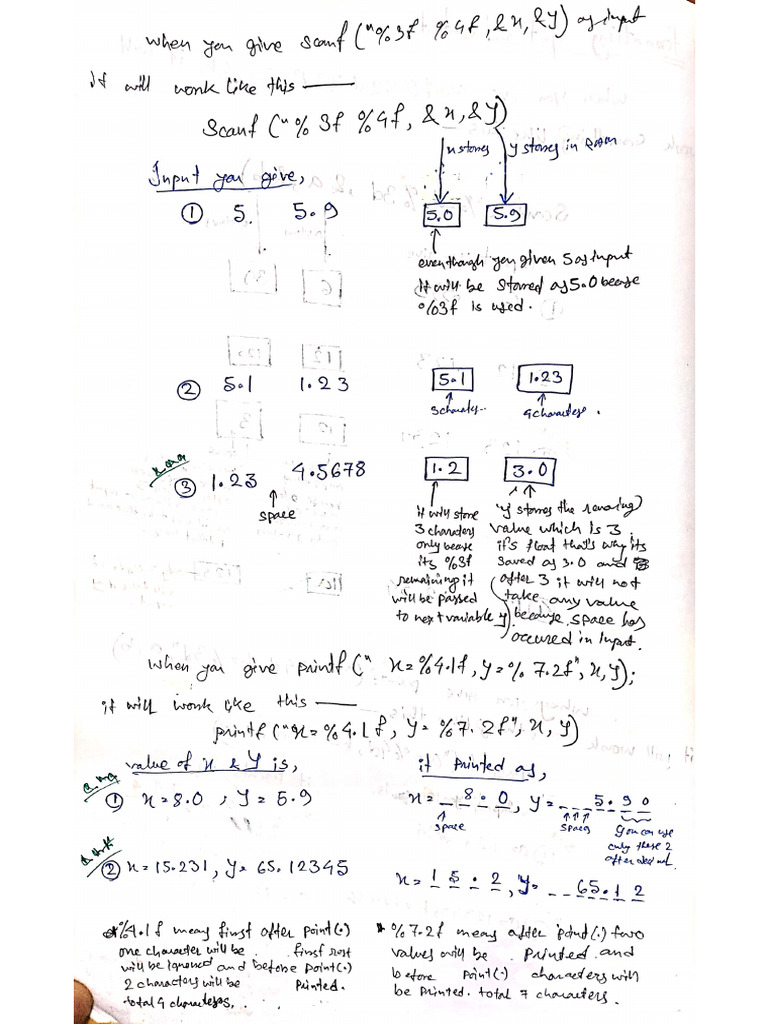 when you give scanf ("%3f %4f, &x, &y) as input
it will work like this ——
Scanf ("% 3f %4f, &x, &y)
x stores y stores in
Input you give,
① 5. 5.9 5.0 5.9
even though you given 5 as input
it will be stored as 5.0 becase
%3f is used.
② 5.1 1.23 5.1 1.23
3 charater.. 4 characters.
③ 1.23 4.5678 1.2 3.0
space
it will store
3 characters
only becase
its %3f
remaining it
will be passed
to next variable y
y stores the remaing
value which is 3.
it's float that's way its
saved as 3.0 and
after 3 it will not
take any value
because space has
occured in Input.
when you give printf (" x=%4.1f, y=% 7.2f", x, y);
it will work like this ——
printf ("x=%4.1f, y= %7.2f", x, y)
value of x & y is, it printed as,
① x=8.0, y=5.9 x= _ 8.0, y= _ _ _ 5.90
space spaces you can use
only these 2
after decimal.
② x=15.231, y=65.12345 x= 15.2, y= _ _ 65.12
* %4.1f meay first after point(.)
one character will be first rest
will be ignored and before point(.)
2 charactoy will be printed.
total 4 characteres..
* %7.2f meay after point(.) two
values will be printed and
before point(.) characters will
be printed. total 7 characters.